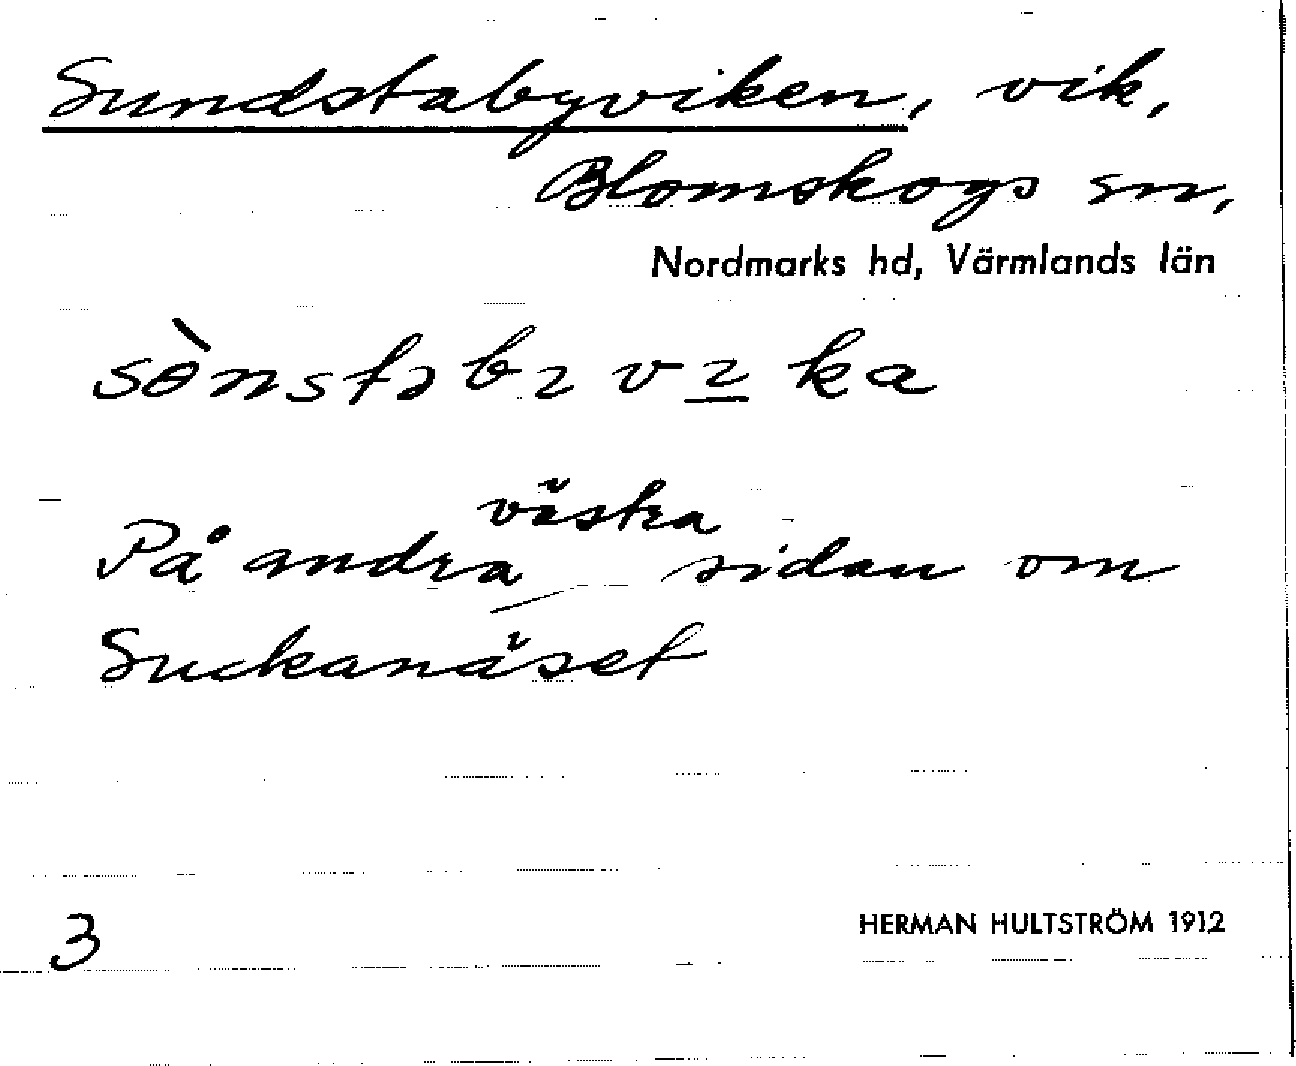 Sundstabyviken, vik,
Blomskogs sn,
Nordmarks hd, Värmlands län
sɵ̀nstabɿvɿ̲ka
västra
På andra sidan om
Suckanäset
3
HERMAN HULTSTRÖM 1912